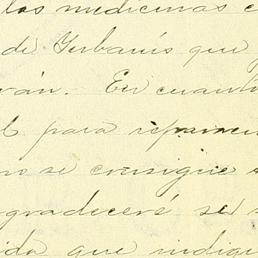 las medicinas
de Gerbanís que
rán. En cuanto
para
se consigue
gradeceré se
ida que indiqu